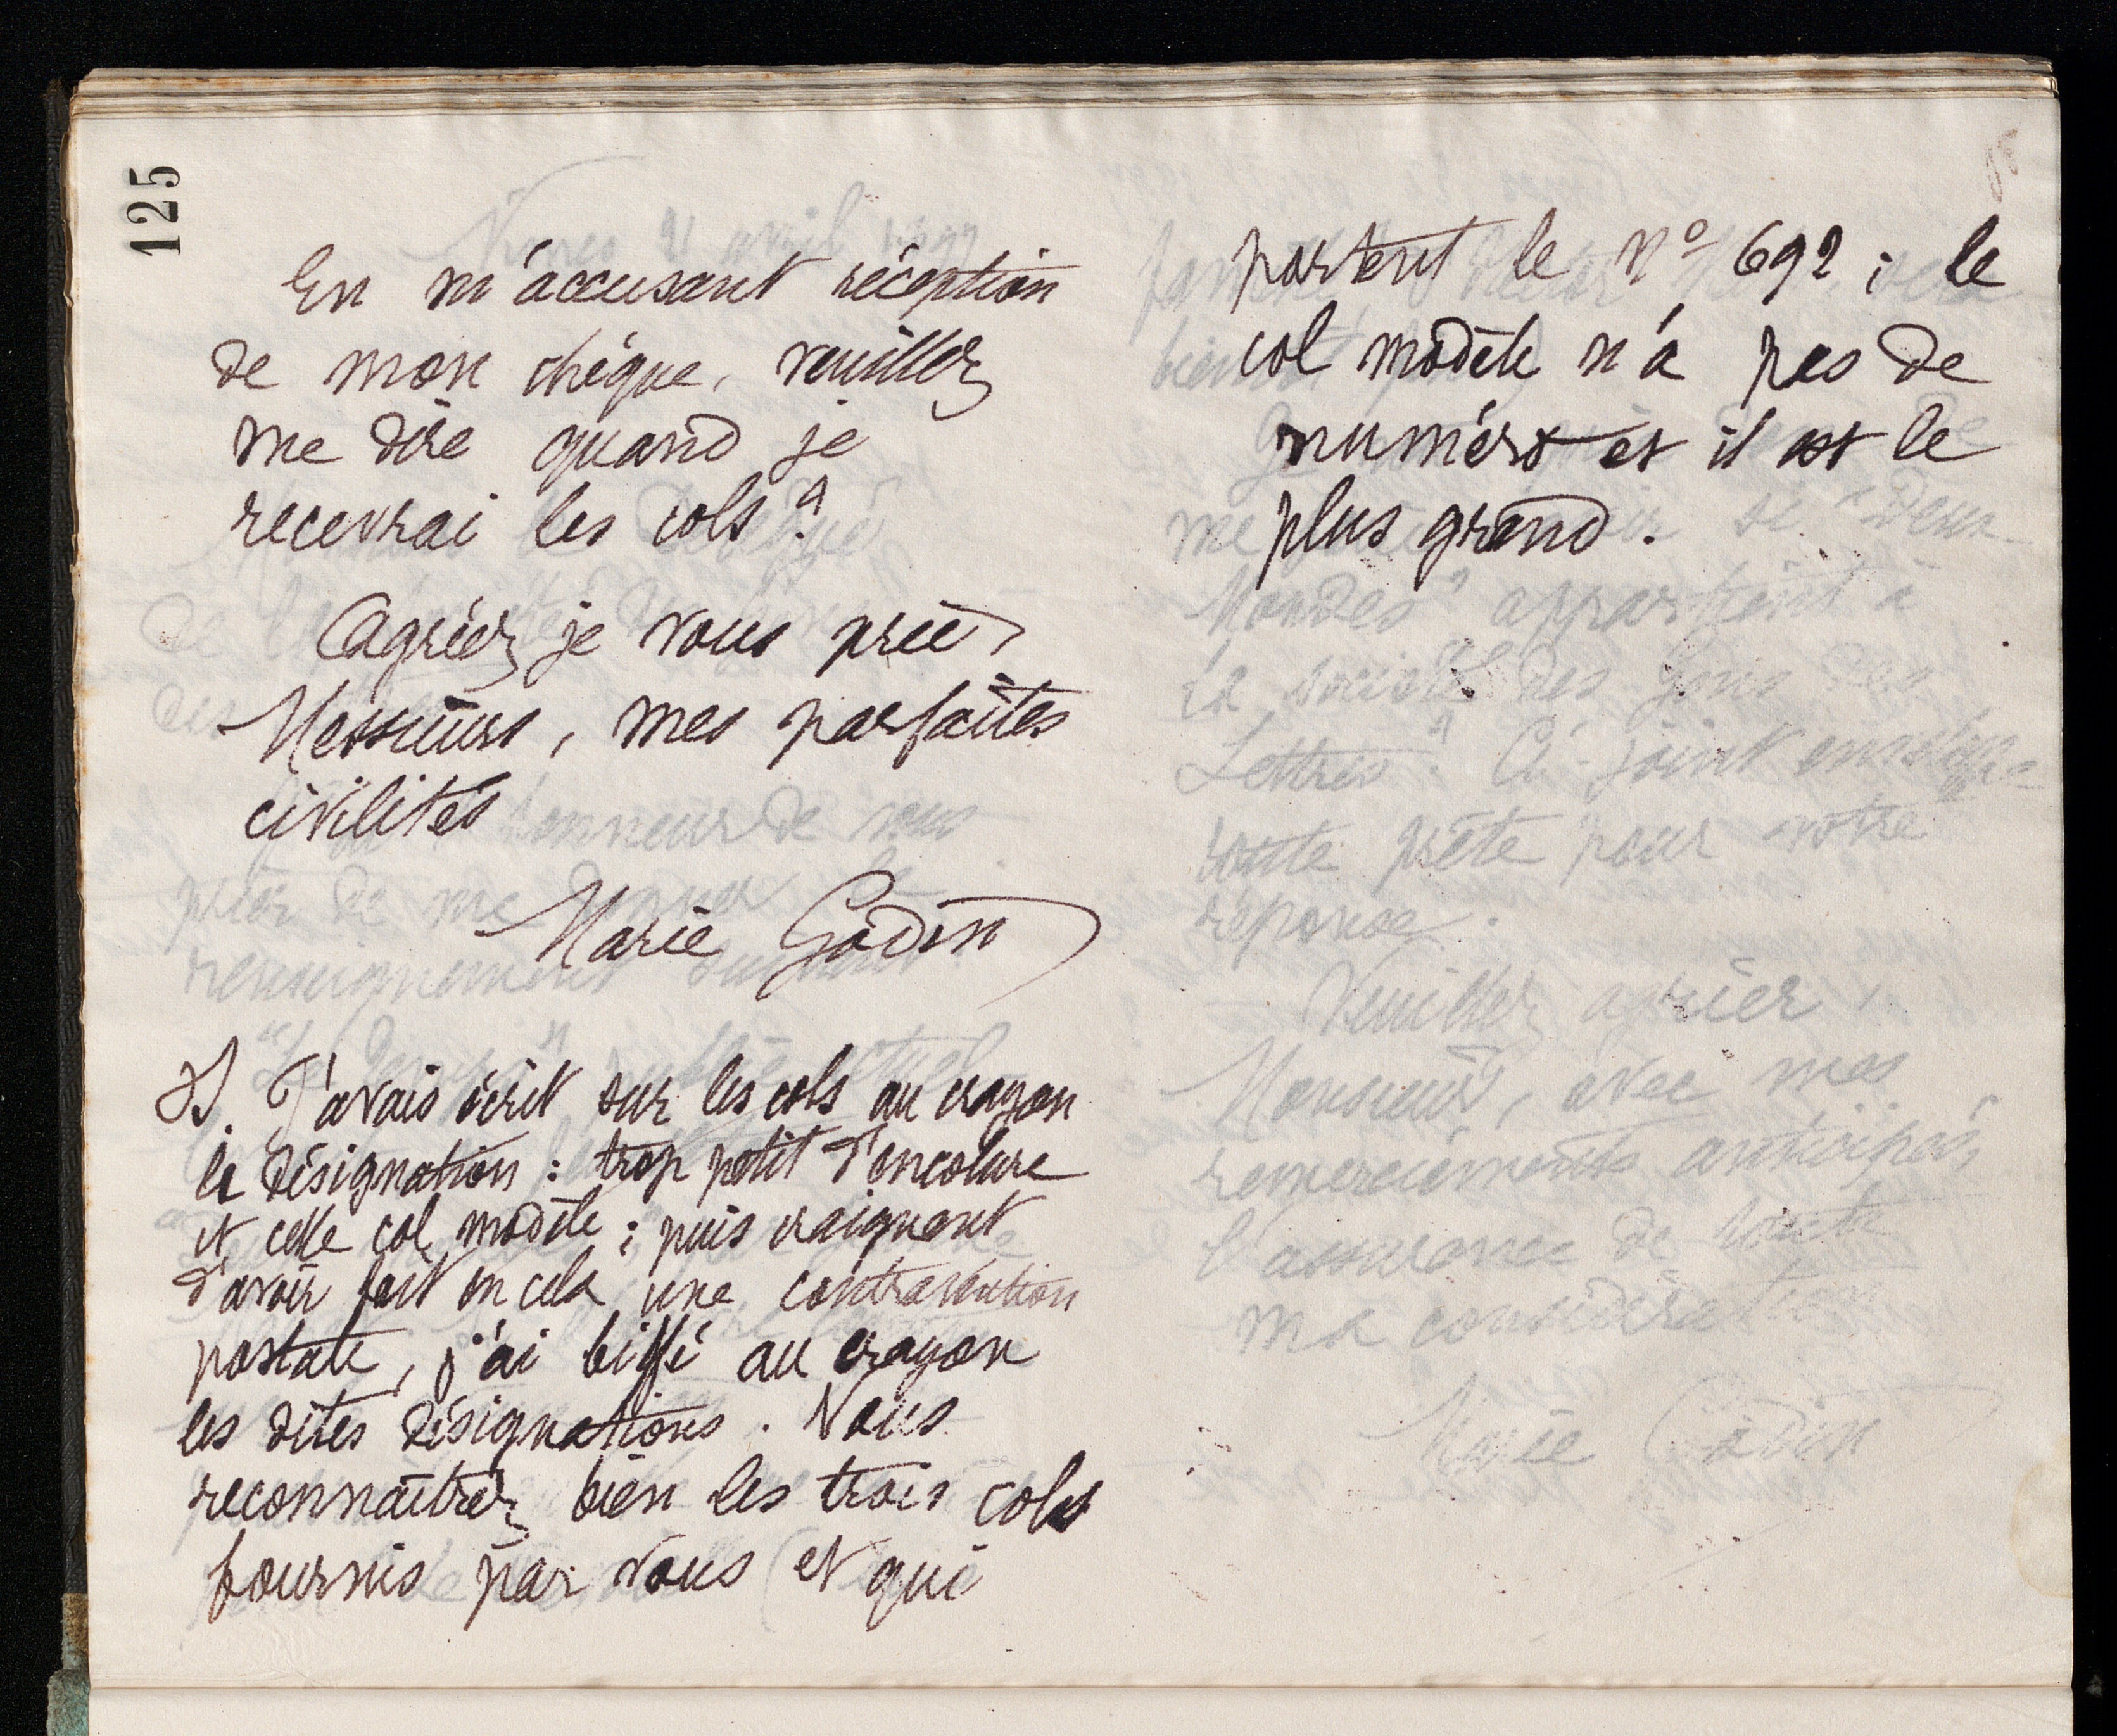 125
En m'accusant réception
de mon chèque, veuillez
me dire quand je
recevrai les cols ?
Agréez je vous prie,
Messieurs, mes parfaites
civilités
Marie Godin
J'avais écrit sur les cols au crayon
la désignation : trop petit d'encolure
et celle col modèle ; puis craignant
d'avoir fait en cela une contravention
postale, j'ai biffé au crayon
les dites désignations. Vous
reconnaîtrez bien les trois cols
fournis par vous et qui
portent le n° 692 ; le
col modèle n'a pas de
numéro et il est le
plus grand.